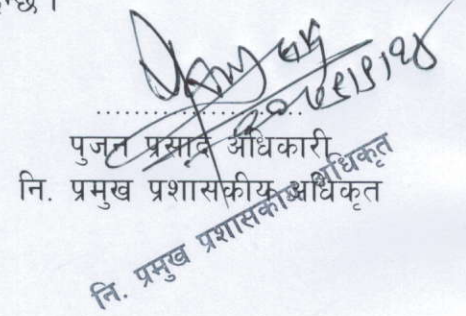 ....................
पुजन प्रसाद अधिकारी
नि. प्रमुख प्रशासकीय अधिकृत
नि. प्रमुख प्रशासकीय अधिकृत